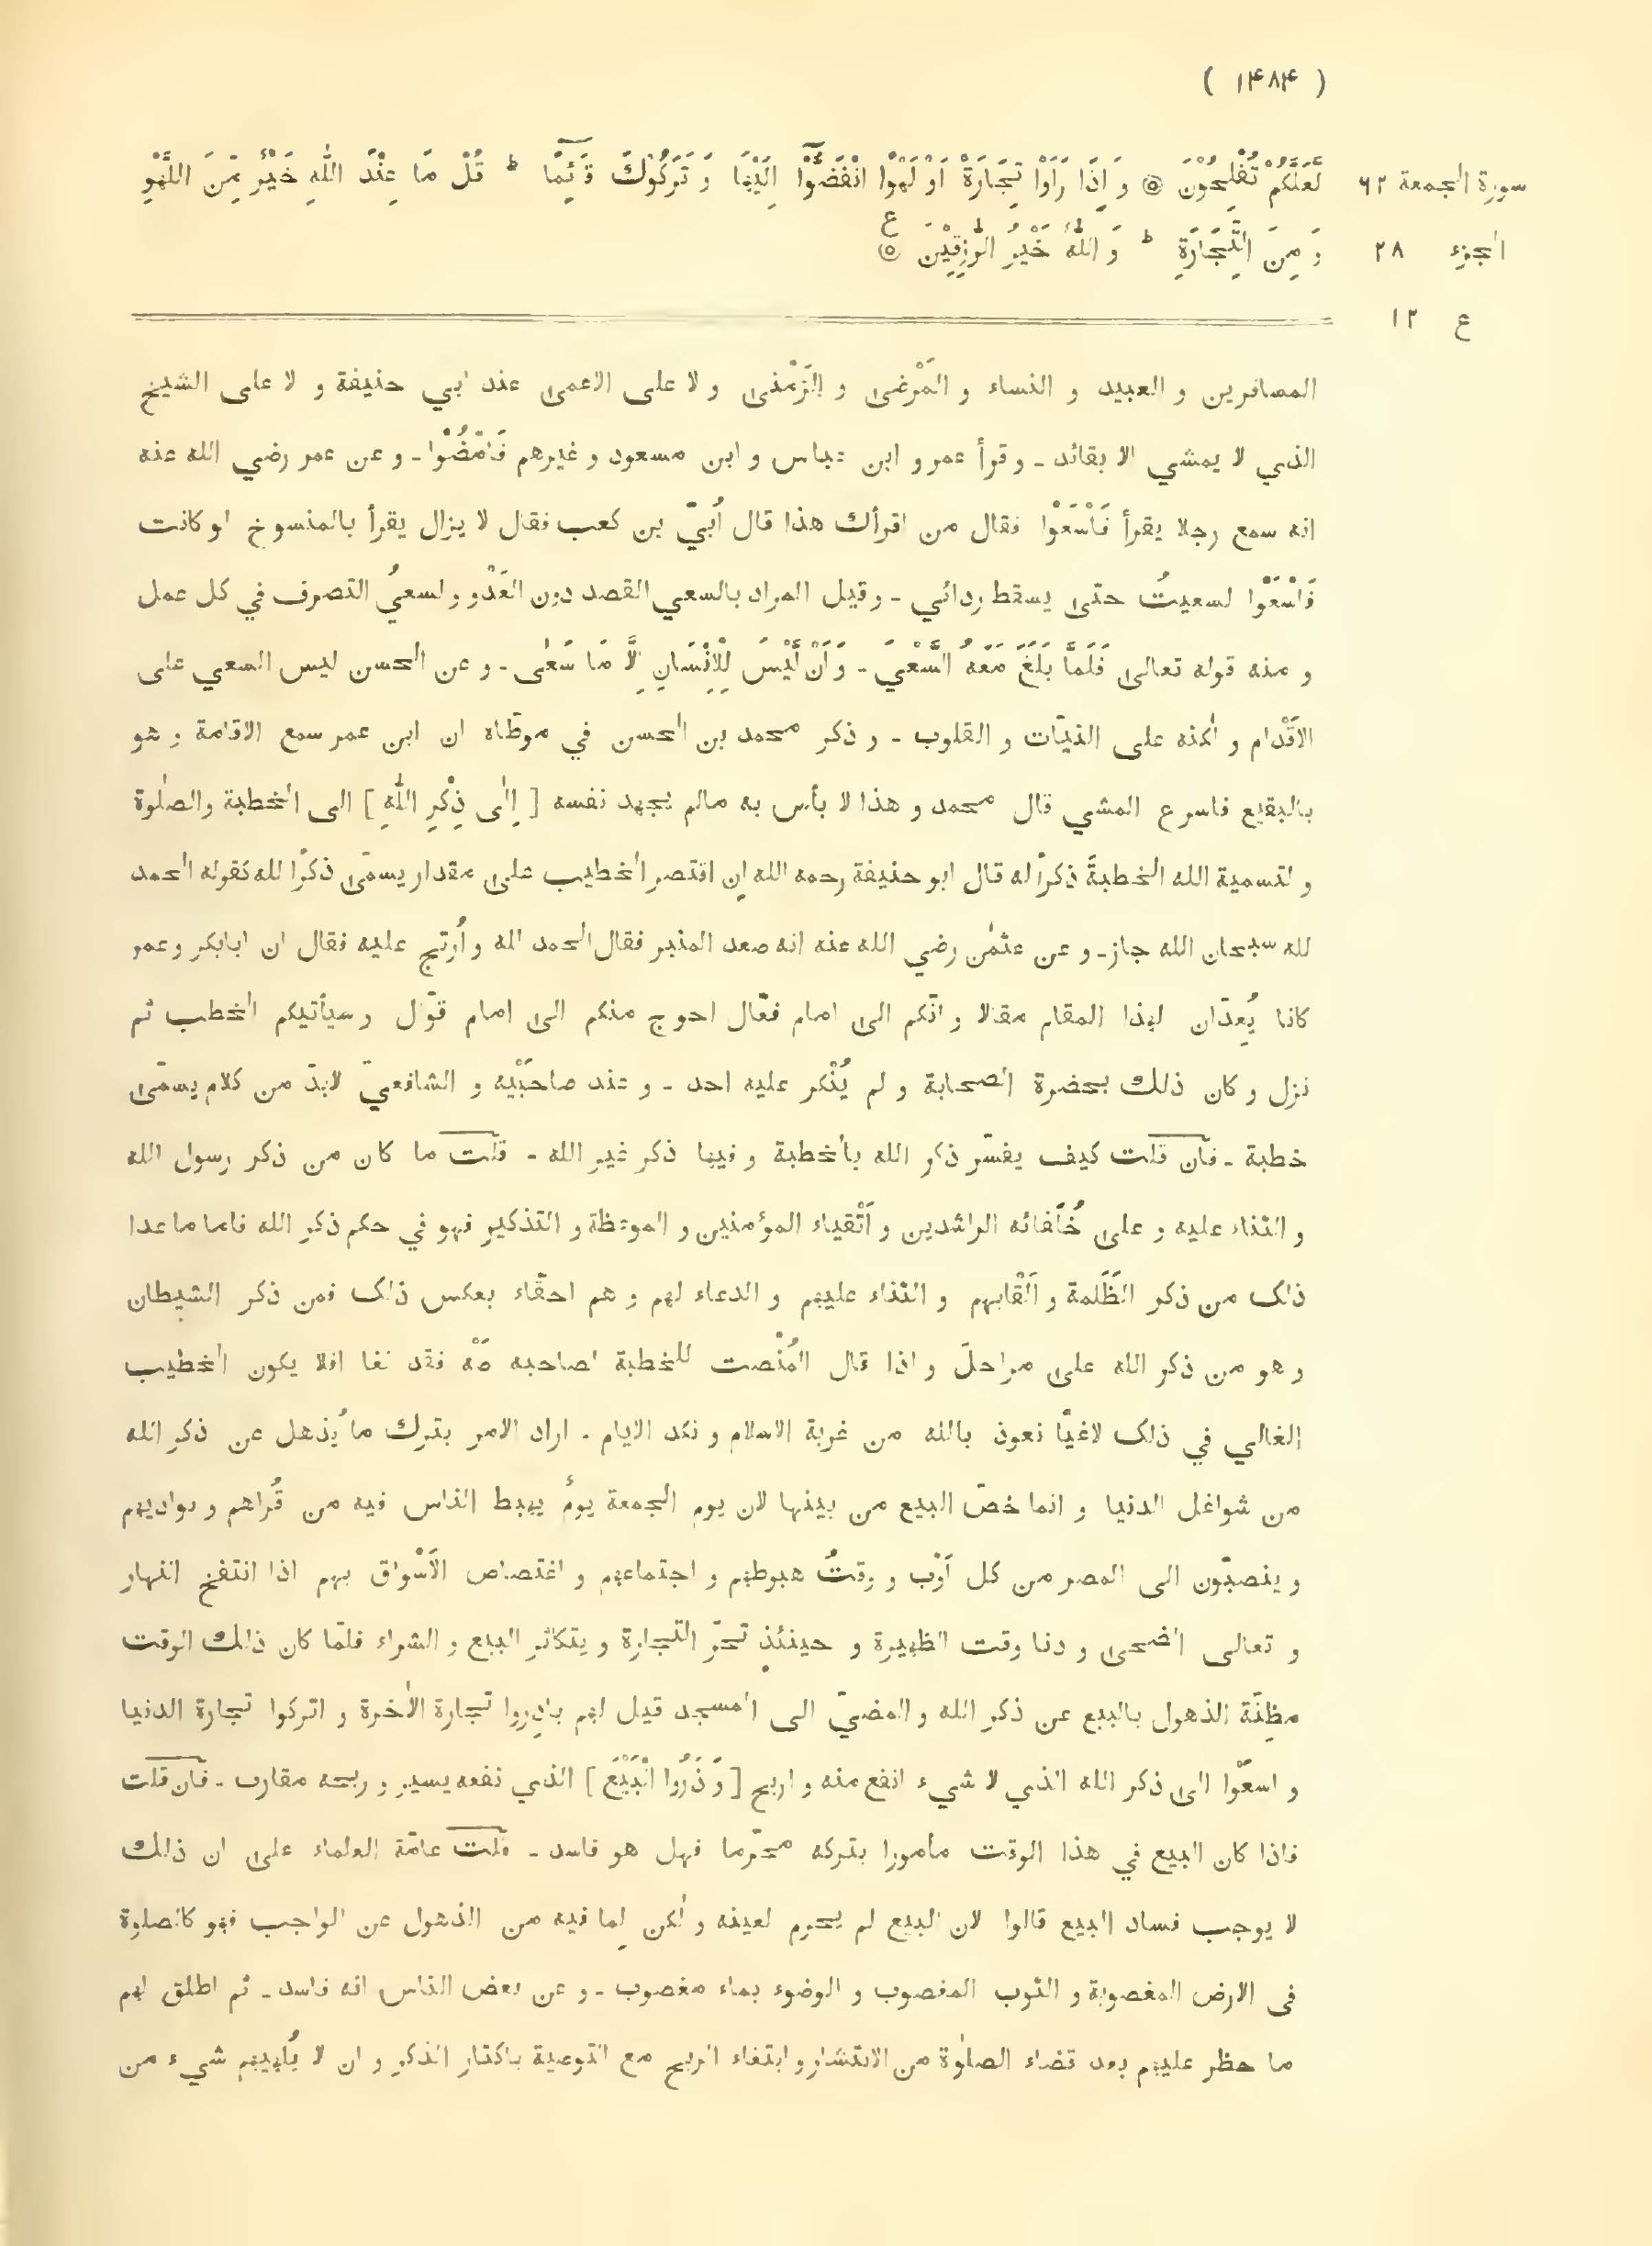 ( ۱۴۸۴ )
سورة الجمعة ۶۲
الجزء ۲۸
ع ۱۲
لَعَلَّكُمْ تُفْلِحُوْنَ ۞ وَ اِذَا رَاَوْا تِجَارَةً اَوْ لَهْوًا انْفَضُّوْٓا اِلَيْهَا وَ تَرَكُوْكَ قَآئِمًا ط قُلْ مَا عِنْدَ اللّٰهِ خَيْرٌ مِّنَ اللَّهْوِ
وَ مِنَ التِّجَارَةِ ط وَ اللّٰهُ خَيْرُ الرّٰزِقِيْنَ ۞ ع
المسافرين و العبيد و النساء و المَرْضى و الزَمْنى و لا على الاعمى عند ابي حنيفة و لا على الشيخ
الذي لا يمشي الا بقائد ـ و قرأ عمر و ابن عباس و ابن مسعود و غيرهم فَامْضُوْا ـ و عن عمر رضي الله عنه
انه سمع رجلا يقرأ فَاسْعَوْا فقال من اقرأك هذا قال اُبيّ بن كعب فقال لا يزال يقرأ بالمنسوخ لو كانت
فَاسْعَوْا لسعيتُ حتى يسقط ردائي ـ و قيل المراد بالسعي القصد دون العَدْو و السعيُ التصرف في كل عمل
و منه قوله تعالى فَلَمَّا بَلَغَ مَعَهُ السَّعْيَ ـ وَ اَنْ لَّيْسَ لِلْاِنْسَانِ اِلَّا مَا سَعٰى ـ و عن الحسن ليس السعي على
الاَقْدام و لٰكنه على النيّات و القلوب ـ و ذكر محمد بن الحسن في موطّاه ان ابن عمر سمع الاقامة و هو
بالبقيع فاسرع المشي قال محمد و هذا لا بأس به مالم يجهد نفسه [ اِلٰى ذِكْرِ اللّٰهِ ] الى الخطبة والصلٰوة
و لتسمية الله الخطبةَ ذكرًا له قال ابو حنيفة رحمه الله ان اقتصر الخطيب على مقدار يسمّى ذكرًا لله كقوله الحمد
لله سبحان الله جاز ـ و عن عثمٰن رضي الله عنه انه صعد المنبر فقال الحمد لله و اُرتج عليه فقال ان ابابكر و عمر
كانا يُعدّان لهذا المقام مقالا و انّكم الى امام فعّال احوج منكم الى امام قوّال و سيأتيكم الخطب ثم
نزل و كان ذلك بحضرة الصحابة و لم يُنْكر عليه احد ـ و عند صاحبَيْه و الشافعيّ لابدّ من كلام يسمّى
خطبة ـ فان قلت كيف يفسّر ذكر الله بالخطبة و فيها ذكر غير الله ـ قلت ما كان من ذكر رسول الله
و الثناء عليه و على خُلَفائه الراشدين و اَتْقياء المؤمنين و الموعظة و التذكير فهو في حكم ذكر الله فاما ما عدا
ذلك من ذكر الظَلَمة و اَلْقابهم و الثناء عليهم و الدعاء لهم و هم احقّاء بعكس ذلك فمن ذكر الشيطان
و هو من ذكر الله على مراحل و اذا قال المُنْصت للخطبة لصاحبه صَهْ فقد لغا افلا يكون الخطيب
الغالي في ذلك لاغيًا نعوذ بالله من غربة الاسلام و نكد الايام . اراد الامر بترك ما يُذهل عن ذكر الله
من شواغل الدنيا و انما خصّ البيع من بينها لان يوم الجمعة يومٌ يهبط الناس فيه من قُراهم و بواديهم
و ينصبّون الى المصر من كل اَوْب و وقتُ هبوطهم و اجتماعهم و اغتصاص الاَسْواق بهم اذا انتفخ النهار
و تعالى الضحى و دنا وقت الظهيرة و حينئذٍ تحرّ التجارة و يتكاثر البيع و الشراء فلمّا كان ذلك الوقت
مظِنّة الذهول بالبيع عن ذكر الله و المضيّ الى المسجد قيل لهم بادِروا تجارة الاٰخرة و اتركوا تجارة الدنيا
و اسعَوْا الى ذكر الله الذي لا شيء انفع منه و اربح [ وَ ذَرُوا الْبَيْعَ ] الذي نفعه يسير و ربحه مقارب ـ فان قلت
فاذا كان البيع في هذا الوقت مأمورا بتركه محرّما فهل هو فاسد ـ قلت عامّة العلماء على ان ذلك
لا يوجب فساد البيع قالوا لان البيع لم يحرم لعينه و لٰكن لِما فيه من الذهول عن الواجب فهو كالصلوة
فى الارض المغصوبة و الثوب المغصوب و الوضوء بماء مغصوب ـ و عن بعض الناس انه فاسد ـ ثم اطلق لهم
ما حظر عليهم بعد قضاء الصلٰوة من الانتشار و ابتغاء الربح مع التوصية باكثار الذكر و ان لا يُلهيهم شيء من